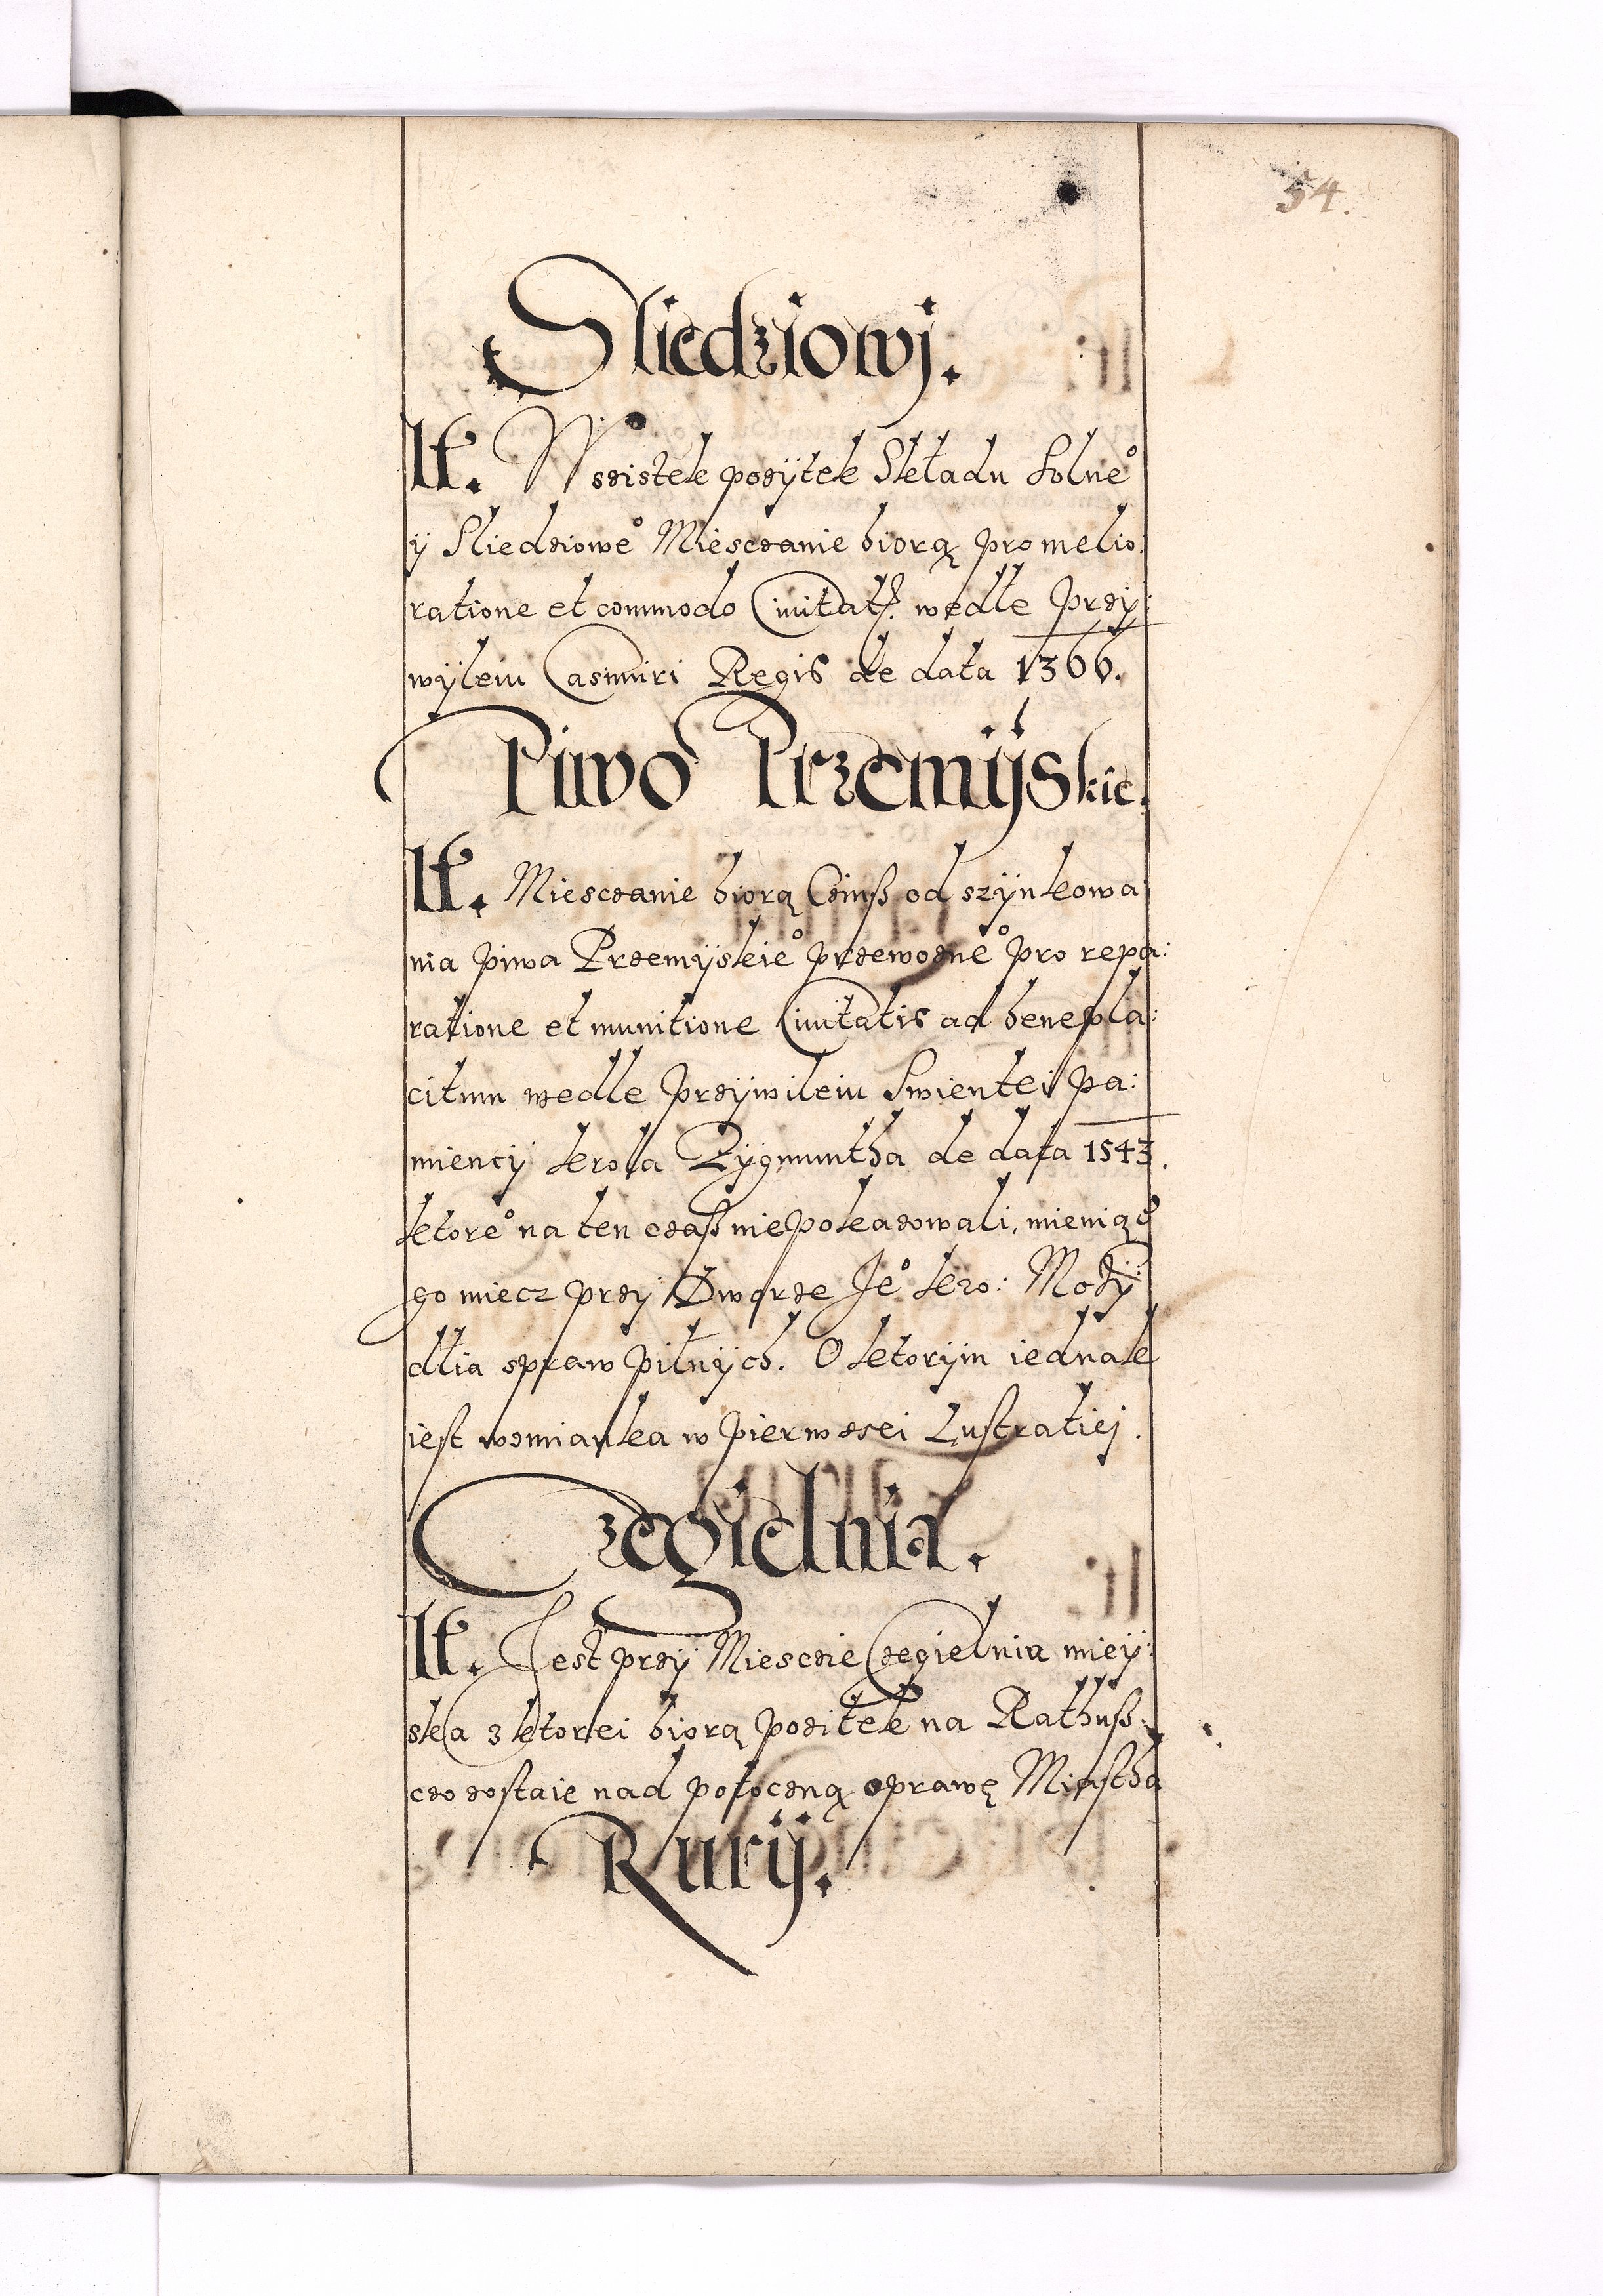 54.
Sliedziowj.
It. Wszistek pozÿtek Składu Solne°
ÿ Sliedziowe° Miesczanie biorą pro melio:
ratione et commodo Ciuitat. wedłe Przÿ:
wÿleiu Casimiri Regis de data 1366.
Piwo Przemÿskie.
It. Miesczanie biorą Czinß od szÿnkowa
nia piwa Przemÿskie° przewozne° pro repa:
ratione et munitione Ciuitatis ad benepla:
citum wedle przÿwileiu Swientei pa:
miencÿ krola Zÿgmuntha de data 1543.
ktore° na ten czaß nie pokazowali, mieniąc
go miecz przÿ Dworze Je° kro: Mozÿ
dlia spraw pilnÿch. O ktorÿm iednak
iest wzmianka w pierwszei Lustratiej.
Czegielnia.
It. Jest przÿ Miesczie Czegielnia mieÿ:
ska z ktorei biorą pozitek na Rathuß,
czo zostaie nad potoczną oprawę Miastha
Rurÿ.